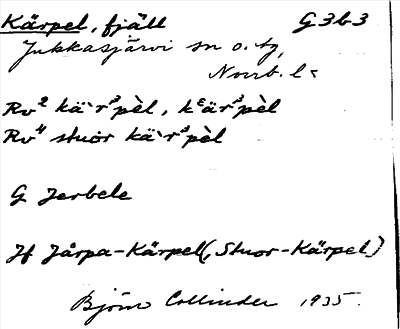 Kärpel, fjäll G3b3
Jukkasjärvi sn o. tg,
Norrb. l.
Rv² kä`rᵊpèl, kᵋärᵊpèl
Rv⁴ stuor kä`rᵊpèl
G Jerbele
Jf Jårpa-Kärpel (, Stuor-Kärpel)
Björn Collinder 1935.